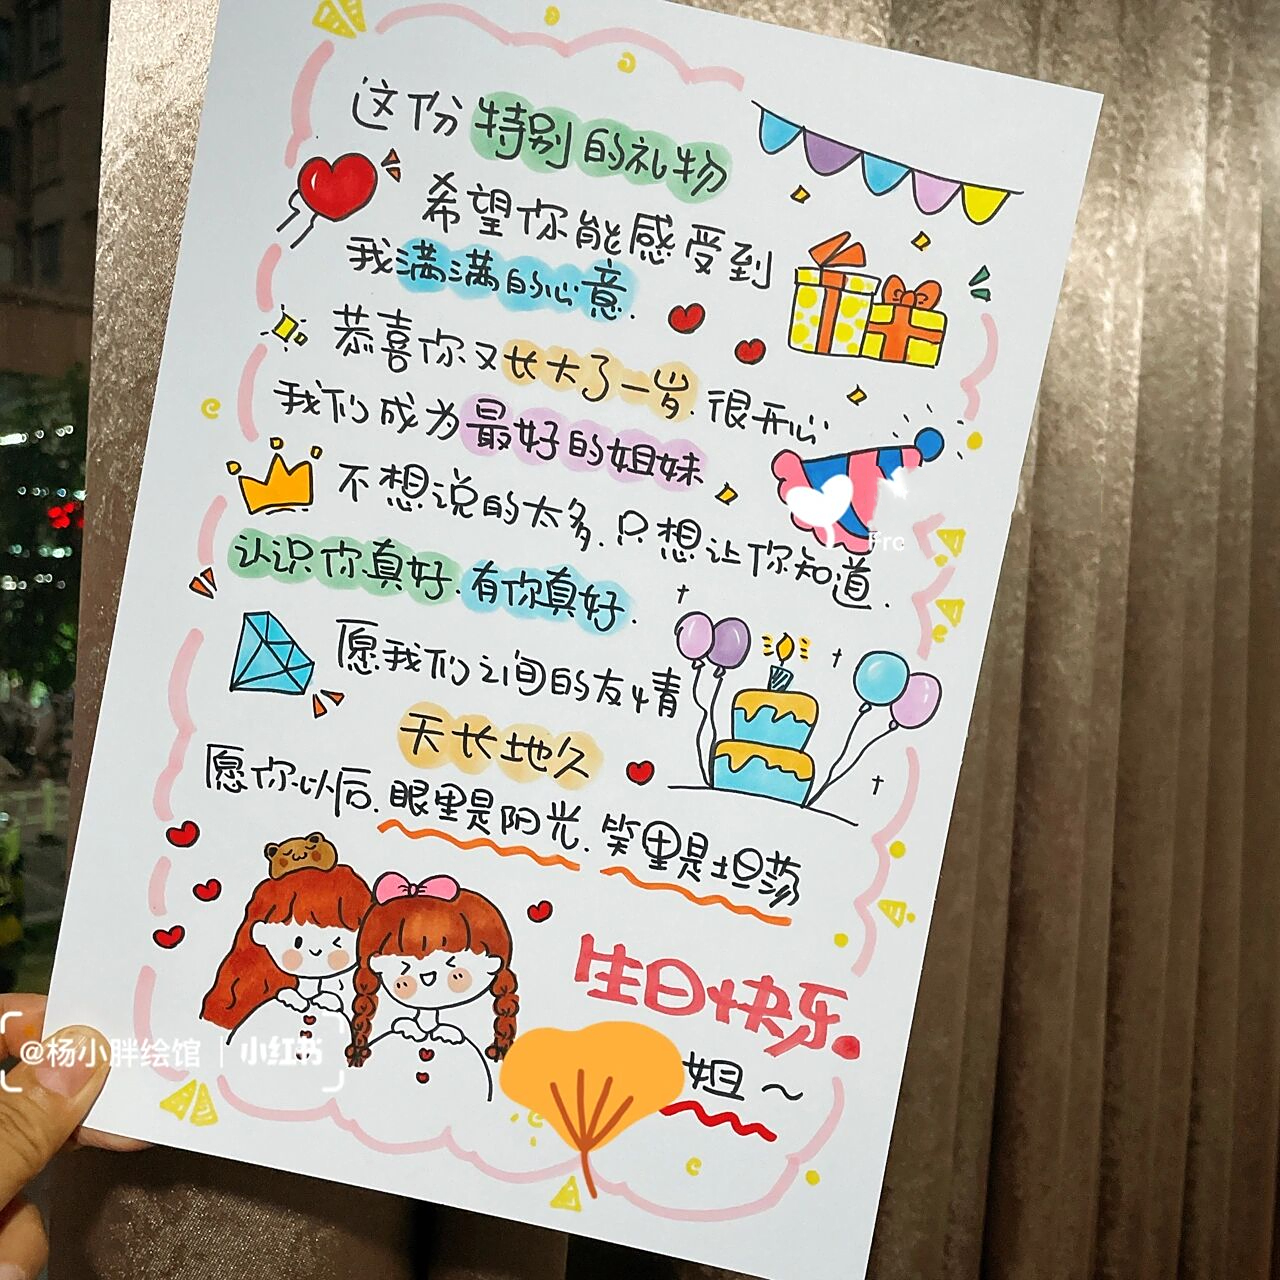 这份特别的礼物
希望你能感受到
我满满的心意.
恭喜你又长大了一岁.很开心
我们成为最好的姐妹
不想说的太多.只想让你知道.
认识你真好.有你真好.
愿我们之间的友情
天长地久
愿你以后.眼里是阳光.笑里是坦荡
生日快乐.
姐~
@杨小胖绘馆 | 小红书
Fro